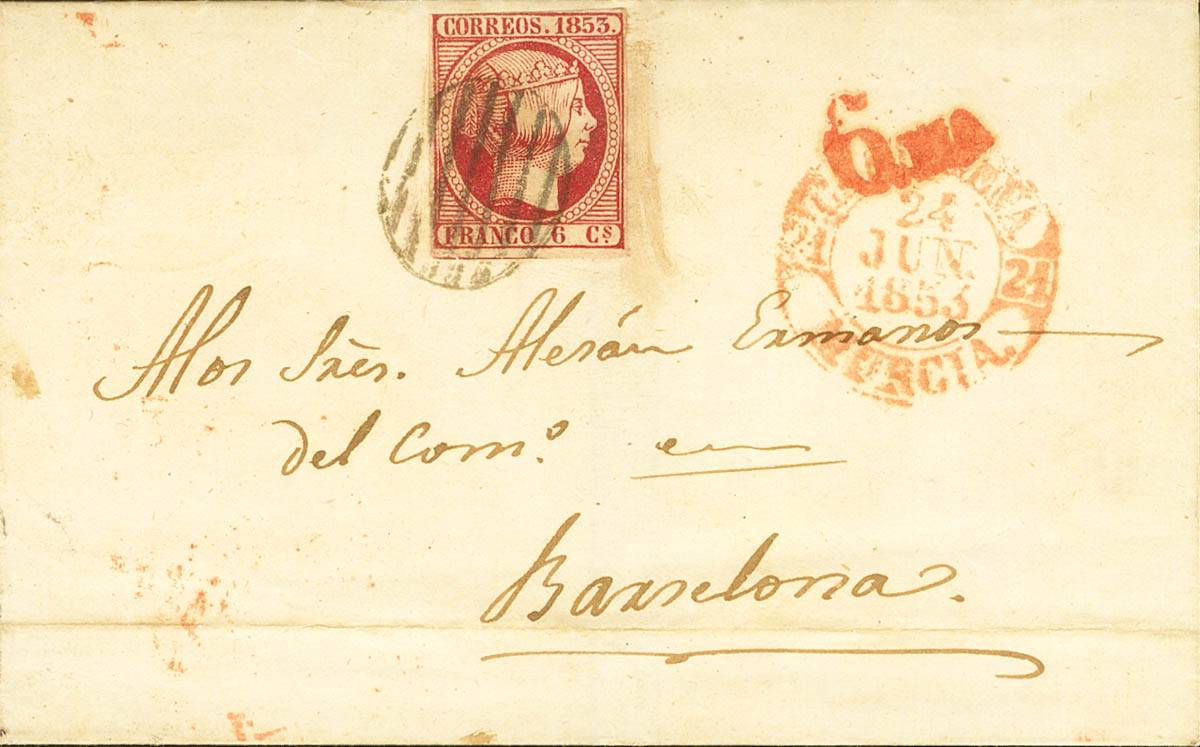 CORREOS. 1853.
FRANCO 6 Cs
6
24
JUN.
1853
MURCIA.
Alos Srês. Alesán Ermanos
del Comº. en
Barselona.